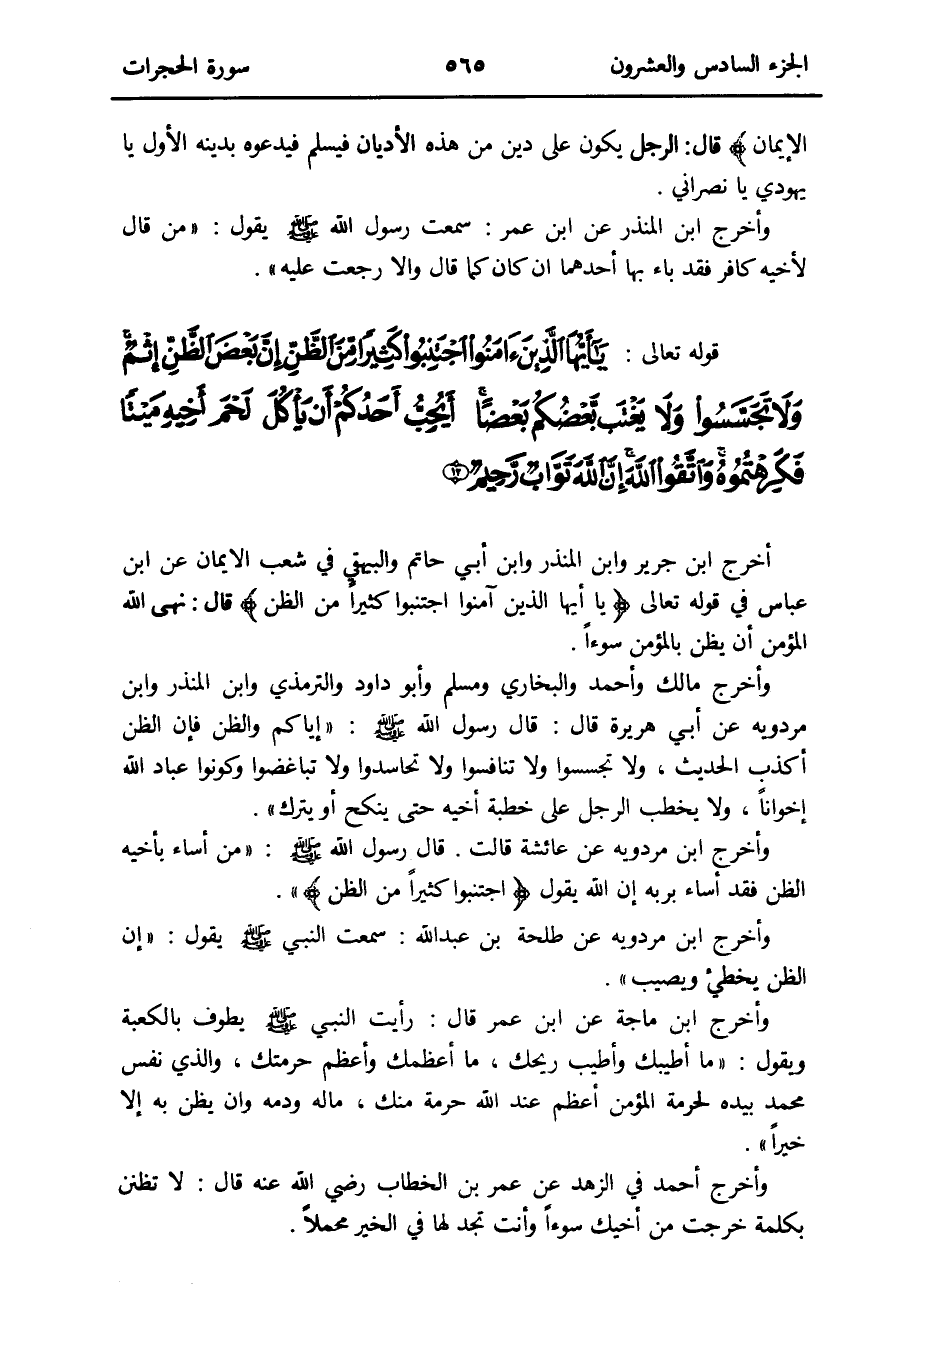 الجزء السادس والعشرون ٥٦٥ سورة الحجرات
الإيمان ﴾ قال: الرجل يكون على دين من هذه الأديان فيسلم فيدعوه بدينه الأول يا
يهودي يا نصراني .
وأخرج ابن المنذر عن ابن عمر : سمعت رسول الله ﷺ يقول : «من قال
لأخيه كافر فقد باء بها أحدهما ان كان كما قال والا رجعت عليه» .
قوله تعالى : يَٰٓأَيُّهَا ٱلَّذِينَ ءَامَنُوا۟ ٱجْتَنِبُوا۟ كَثِيرًا مِّنَ ٱلظَّنِّ إِنَّ بَعْضَ ٱلظَّنِّ إِثْمٌ ۖ
وَلَا تَجَسَّسُوا۟ وَلَا يَغْتَب بَّعْضُكُم بَعْضًا ۚ أَيُحِبُّ أَحَدُكُمْ أَن يَأْكُلَ لَحْمَ أَخِيهِ مَيْتًا
فَكَرِهْتُمُوهُ ۚ وَٱتَّقُوا۟ ٱللَّهَ ۚ إِنَّ ٱللَّهَ تَوَّابٌ رَّحِيمٌ ١٢
أخرج ابن جرير وابن المنذر وابن أبي حاتم والبيهقي في شعب الايمان عن ابن
عباس في قوله تعالى ﴿ يا أيها الذين آمنوا اجتنبوا كثيراً من الظن ﴾ قال : نهى الله
المؤمن أن يظن بالمؤمن سوءاً .
وأخرج مالك وأحمد والبخاري ومسلم وأبو داود والترمذي وابن المنذر وابن
مردويه عن أبي هريرة قال : قال رسول الله ﷺ : «إياكم والظن فإن الظن
أكذب الحديث ، ولا تجسسوا ولا تنافسوا ولا تحاسدوا ولا تباغضوا وكونوا عباد الله
إخواناً ، ولا يخطب الرجل على خطبة أخيه حتى ينكح أو يترك» .
وأخرج ابن مردويه عن عائشة قالت . قال رسول الله ﷺ : «من أساء بأخيه
الظن فقد أساء بربه إن الله يقول ﴿ اجتنبوا كثيراً من الظن ﴾» .
وأخرج ابن مردويه عن طلحة بن عبدالله : سمعت النبي ﷺ يقول : «إن
الظن يخطئ ويصيب» .
وأخرج ابن ماجة عن ابن عمر قال : رأيت النبي ﷺ يطوف بالكعبة
ويقول : «ما أطيبك وأطيب ريحك ، ما أعظمك وأعظم حرمتك ، والذي نفس
محمد بيده لحرمة المؤمن أعظم عند الله حرمة منك ، ماله ودمه وان يظن به إلا
خيراً» .
وأخرج أحمد في الزهد عن عمر بن الخطاب رضي الله عنه قال : لا تظنن
بكلمة خرجت من أخيك سوءاً وأنت تجد لها في الخير محملاً .